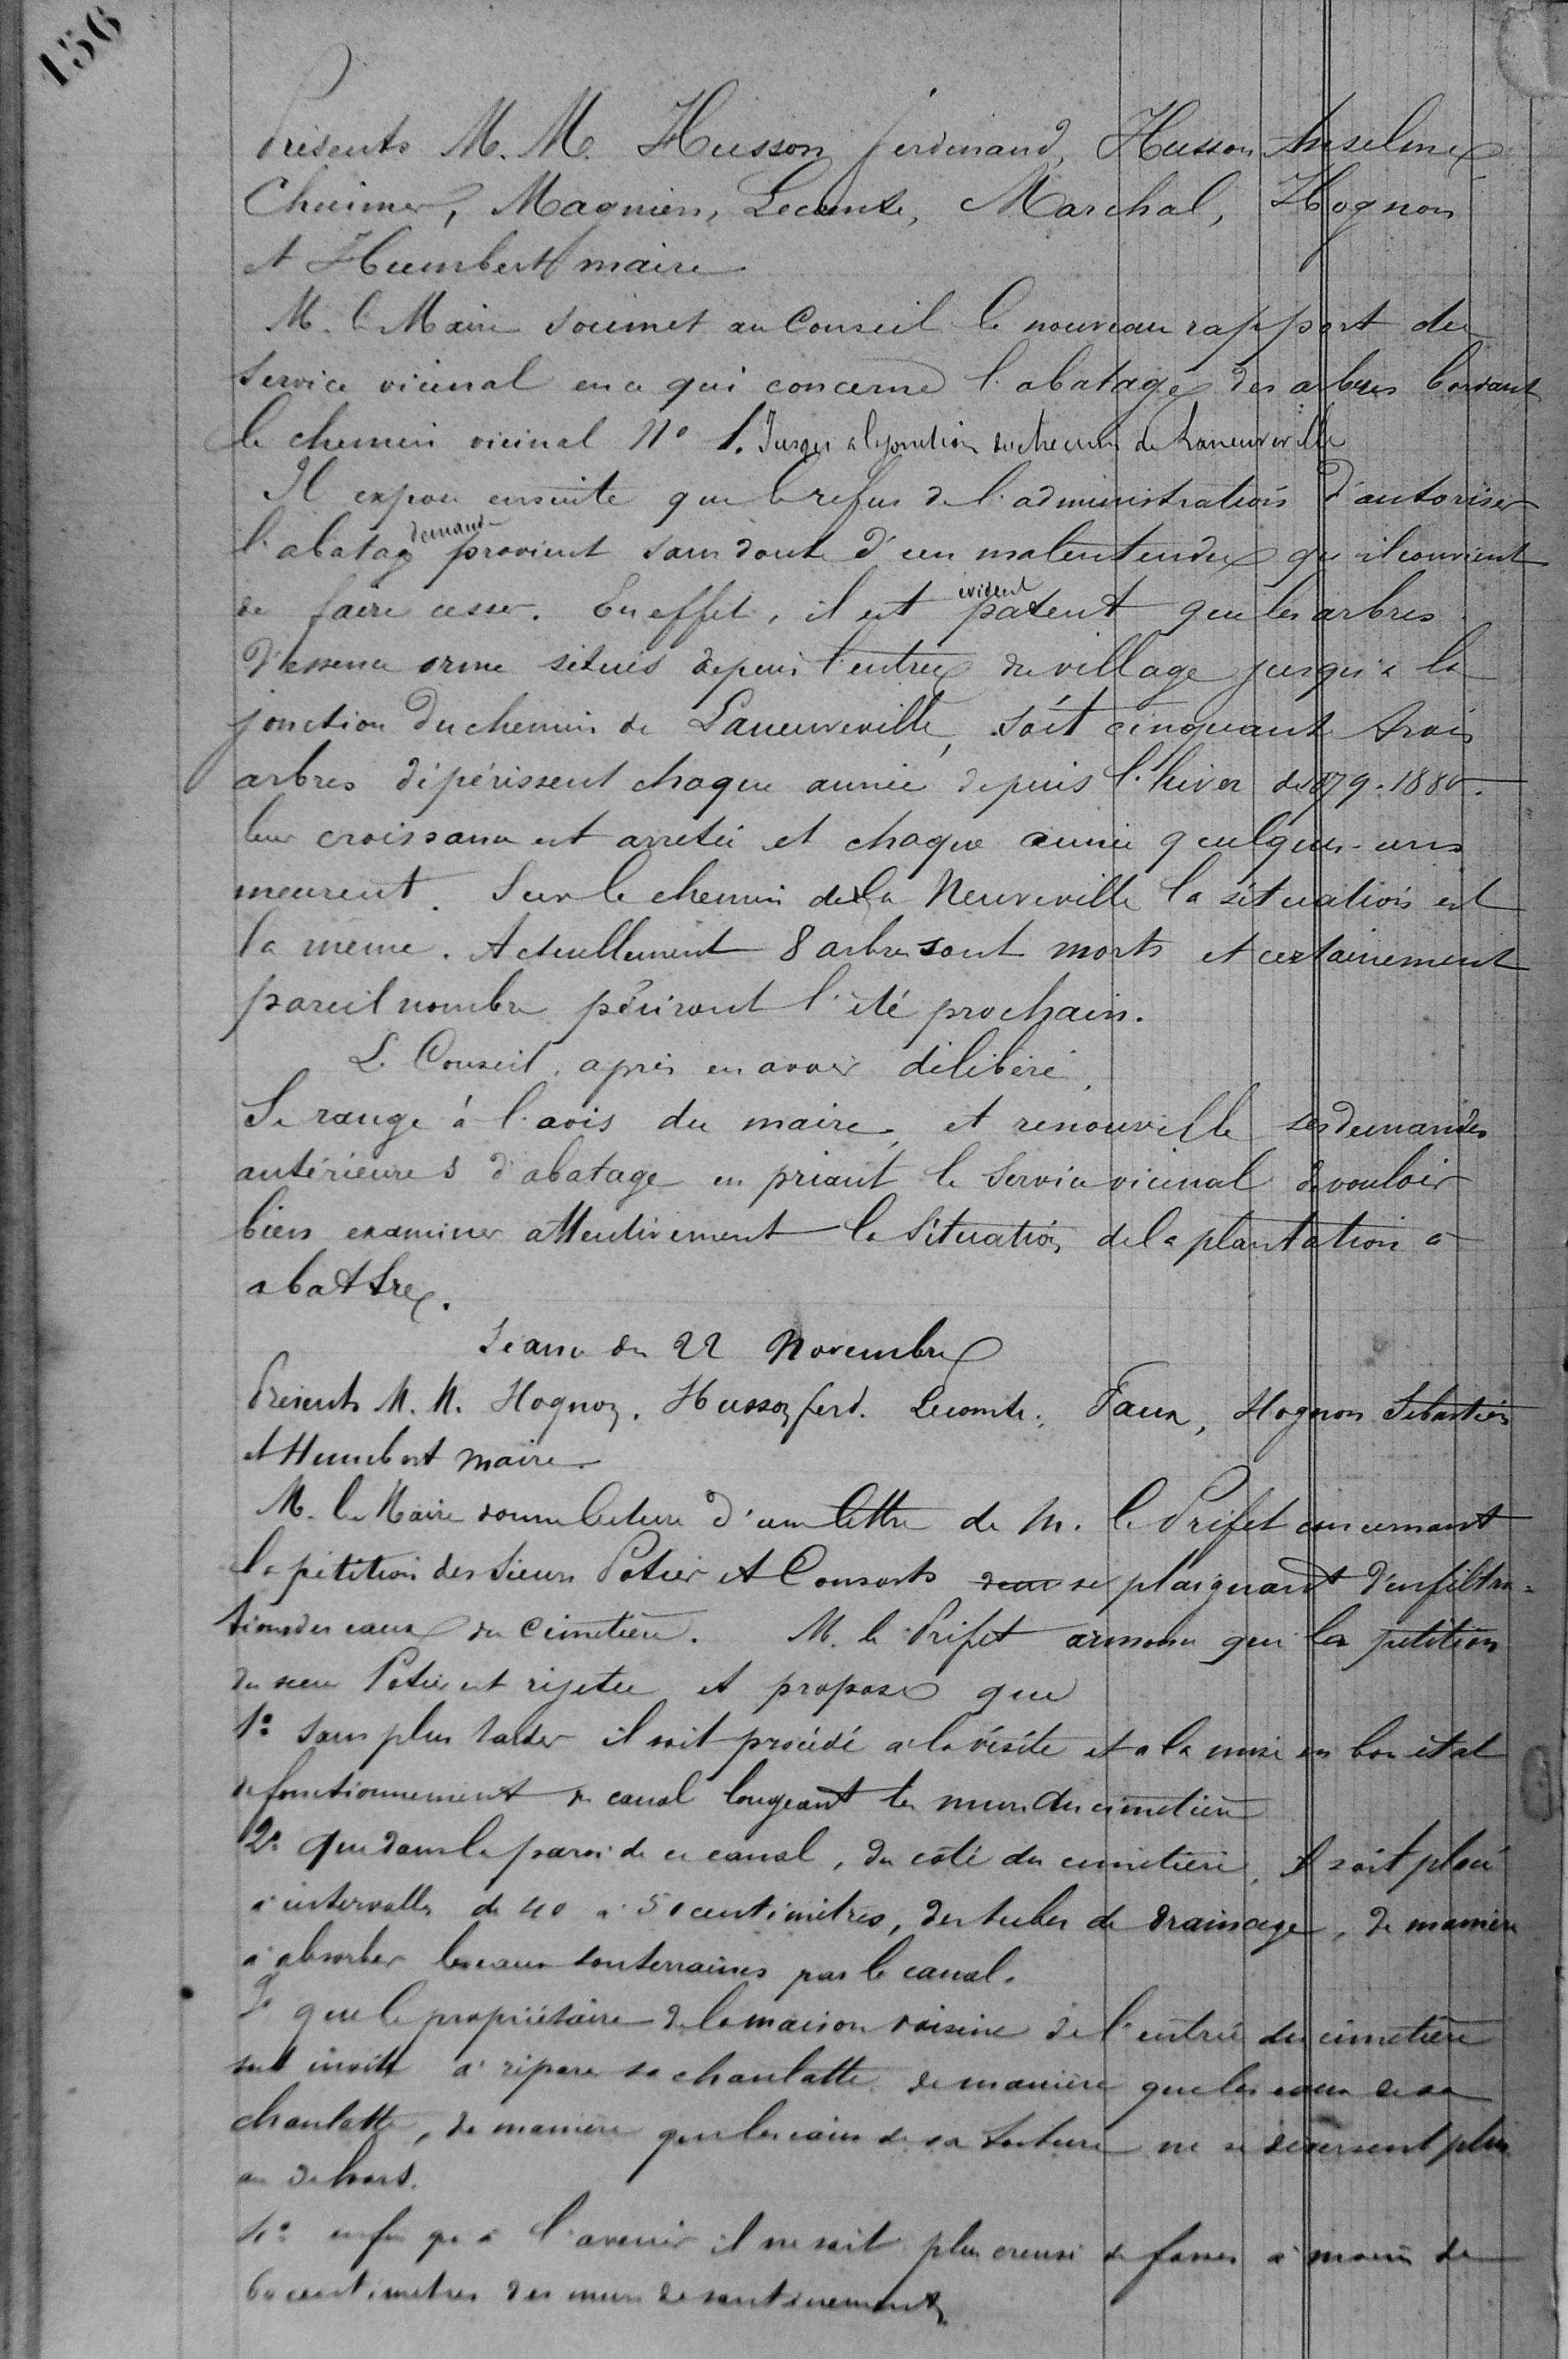 156
Présents M. M. Husson ferdinand, Husson Anselme
Chuimer, Magnien, Lecomte, Marchal, Hognon
et Humbert maire
M. le Maire soumet au Conseil le nouveau rapport du
Service vicinal en ce qui concerne l'abatage des arbres bordant
le chemin vicinal No 1. Jusqu'à la jonction du chemin de Laneuveville
Il expose ensuite que le refus de l'administration d'autoriser
l'abatage demandé provient sans doute d'un malentendu qu'il convient
de faire cesser. En effet, il est patent évident que les arbres
d'essence orme situés depuis l'entrée du village jusqu'à la
jonction du chemin de Laneuveville, soit cinquante trois
arbres dépérissent chaque année depuis l'hiver de 1879-1880.
leur croissance est arretée et chaque année quelques-uns
meurent. Sur le chemin de la Neuveville la situation est
la même. Actuellement 8 arbres sont morts et certainement
pareil nombre périront l'été prochain.
Le Conseil, après en avoir délibéré,
Se range à l'avis du maire, et renouvelle ses demandes
antérieures d'abatage en priant le Service vicinal de vouloir
bien examiner attentivement la Situation de la plantation à
abattre.
Séance du 22 Novembre
Présents M. M. Hognon, Husson ferd. Lecomte, Faux, Hognon Sébastien
et Humbert maire
M. le Maire donne lecture d'une lettre de M. le Préfet concernant
la pétition des sieurs Potier et Consorts se plaignant d'infiltra-
tions des eaux du Cimetière. M. le Préfet annonce que la pétition
du sieur Potier est rejetée et propose que
1o Sans plus tarder il soit procédé à la visite et à la mise en bon état
de fonctionnement du canal longeant les murs du cimetière
2o Que dans la paroi de ce canal, du coté du cimetière, il soit placé
à intervalles de 40 à 50 centimètres, des tubes de drainage, de manière
à absorber les eaux souterraines par le canal.
3o que le propriétaire de la maison voisine de l'entrée du cimetière
soit invité à réparer sa chanlatte de manière que les eaux de sa
chanlatte, de manière que les eaux de sa toiture ne se déversent plus
au dehors.
4o enfin qu'à l'avenir il ne soit plus creusé de fosses à moins de
60 centimètres des murs de soutènement.